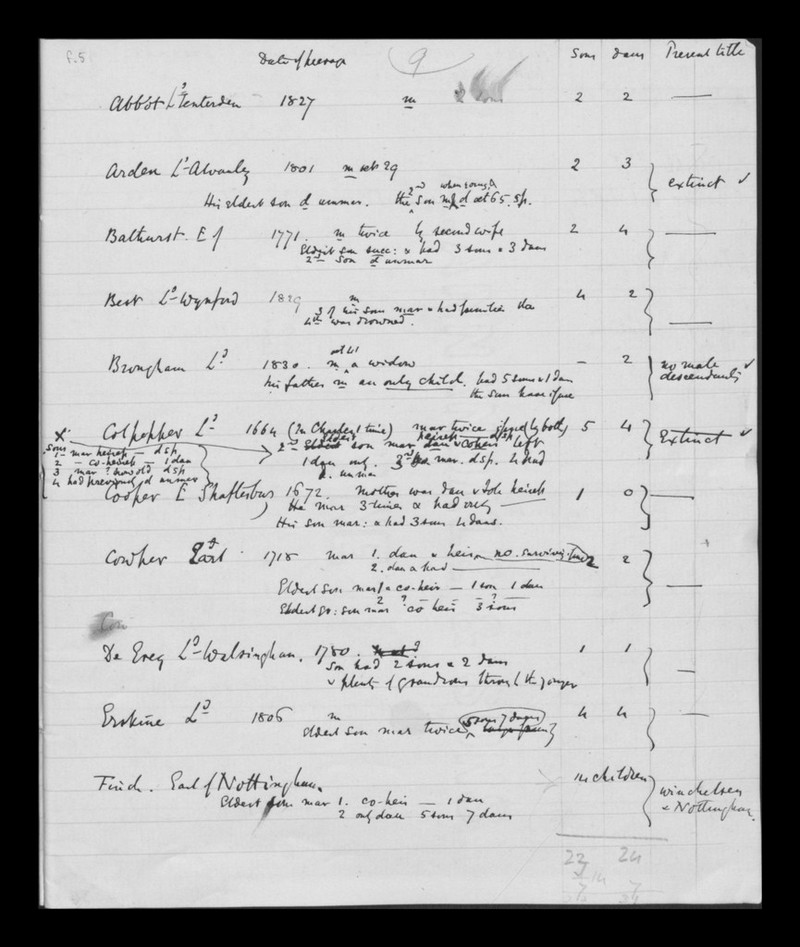 f.5
Date of peerage 9 Sons daus Present title
Abbot Ld Tenterden 1827 m 2 2 —
Arden Ld Alvanley 1801 m aet 29 2 3 extinct ✓
His eldest son d unmar. the 2nd son when young d aet 65 s.p.
Bathurst E of 1771. m twice by second wife 2 4 —
Eldest son succ: & had 3 sons & 3 daus
2nd son d unmar
Best Ld Wynford 1829 m 4 2 —
3 of his son mar & had families the
4th was drowned.
Brougham Ld 1830. m aet 41 a widow – 2 no male descendants ✓
his father m an only child. had 5 sons & 1 dau
the sons have issue
Colpepper Ld 1664 (In Charles 1 time) mar twice issue by both 5 4 Extinct ✓
2nd eldest son mar dau & coheir left
1 dau only. 3rd mar. dsp. 4 had
d. unmar
X Sons
1 mar heiress — dsp
2 — co-heiress — 1 dau
3 mar ? how old dsp
4 had previously d unmar
Cooper E Shaftesbury 1672. Mother was dau & sole heiress 1 0 —
He mar 3 times & had only —
His son mar: & had 3 sons 4 daus.
Cowper Earl 1718 mar 1. dau & heir no surviving issue 2 2 —
2. dau & had —
Eldest son mar 1 co-heir — 1 son 1 dau
Eldest gr: son mar 2 ? co heir — 3 ? sons
Con
De Grey Ld Walsingham. 1780. 1 1 —
Son had 2 sons & 2 daus
& plenty of grandsons through the younger
Erskine Ld 1806 m 4 4 —
Eldest son mar twice (5 sons 7 daus)
Finch. Earl of Nottingham. 14 children Winchelsea & Nottingham.
Eldest son mar 1. co-heir — 1 dau
2 only dau 5 sons 7 daus
22 24
14
7